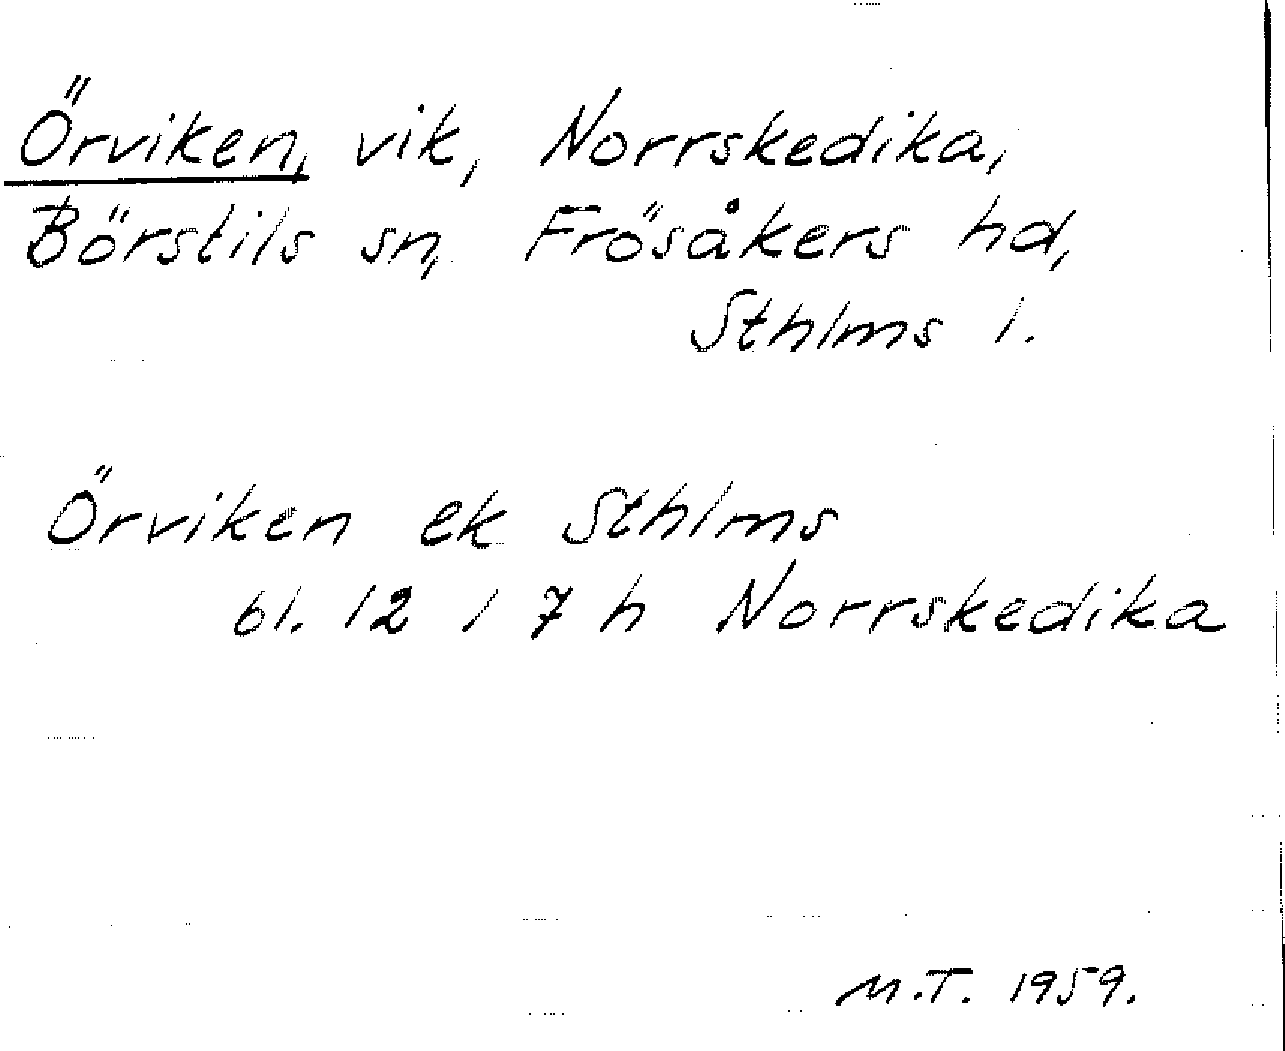 Örviken, vik, Norrskedika,
Börstils sn, Frösåkers hd,
Sthlms l.
Örviken ek Sthlms
bl. 12 1 7 h Norrskedika
M.T. 1959.